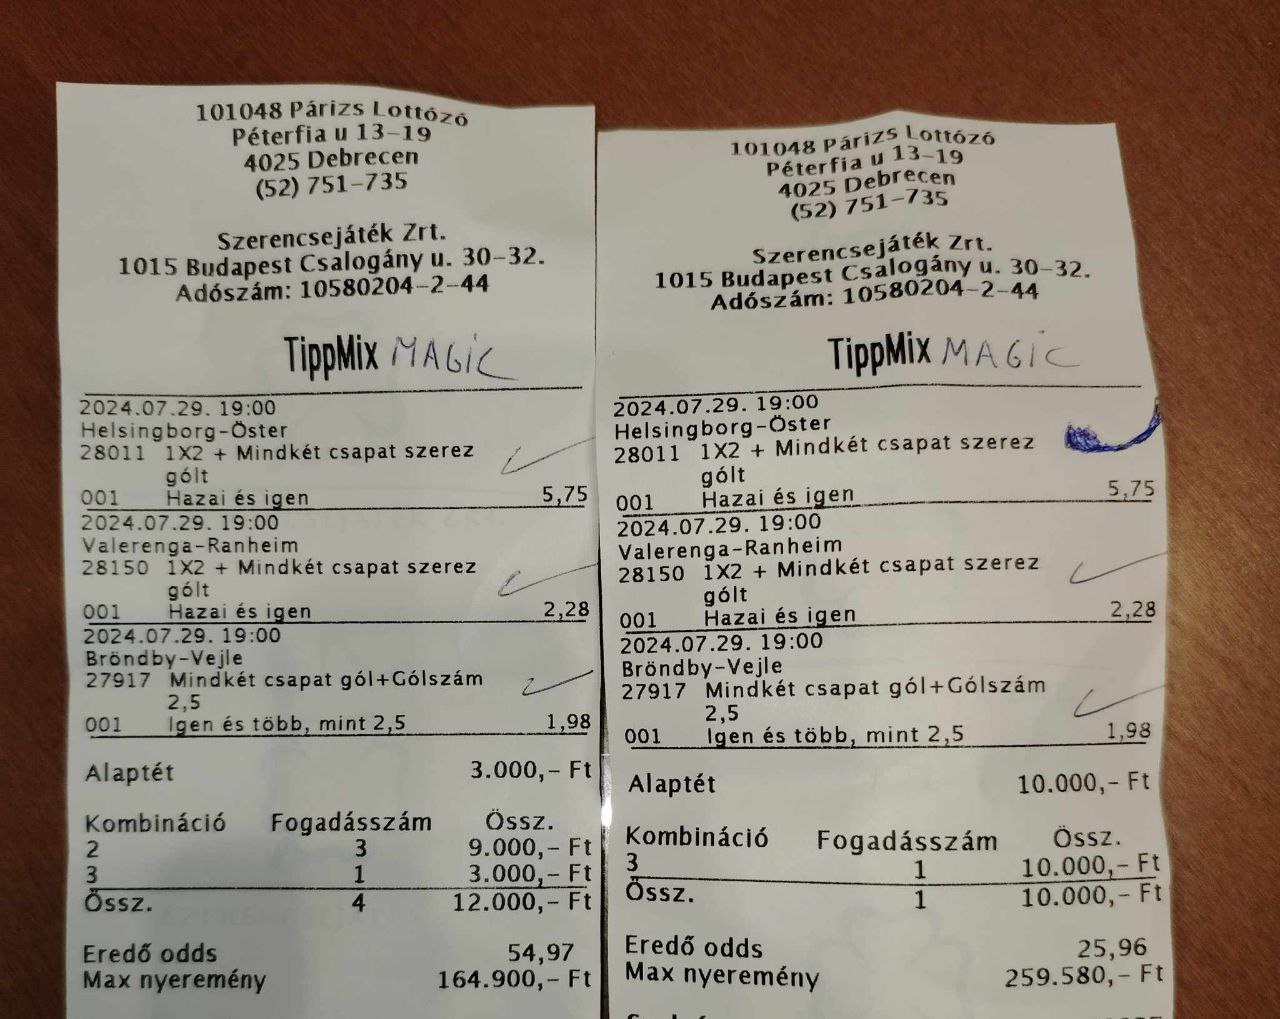 101048 Párizs Lottózó
Péterfia u 13-19
4025 Debrecen
(52) 751-735
Szerencsejáték Zrt.
1015 Budapest Csalogány u. 30-32.
Adószám: 10580204-2-44
TippMix MAGIC
2024.07.29. 19:00
Helsingborg-Öster
28011 1X2 + Mindkét csapat szerez
gólt
001 Hazai és igen 5,75
2024.07.29. 19:00
Valerenga-Ranheim
28150 1X2 + Mindkét csapat szerez
gólt
001 Hazai és igen 2,28
2024.07.29. 19:00
Bröndby-Vejle
27917 Mindkét csapat gól+Gólszám
2,5
001 Igen és több, mint 2,5 1,98
Alaptét 3.000,- Ft
Kombináció Fogadásszám Össz.
2 3 9.000,- Ft
3 1 3.000,- Ft
Össz. 4 12.000,- Ft
Eredő odds 54,97
Max nyeremény 164.900,- Ft
101048 Párizs Lottózó
Péterfia u 13-19
4025 Debrecen
(52) 751-735
Szerencsejáték Zrt.
1015 Budapest Csalogány u. 30-32.
Adószám: 10580204-2-44
TippMix MAGIC
2024.07.29. 19:00
Helsingborg-Öster
28011 1X2 + Mindkét csapat szerez
gólt
001 Hazai és igen 5,75
2024.07.29. 19:00
Valerenga-Ranheim
28150 1X2 + Mindkét csapat szerez
gólt
001 Hazai és igen 2,28
2024.07.29. 19:00
Bröndby-Vejle
27917 Mindkét csapat gól+Gólszám
2,5
001 Igen és több, mint 2,5 1,98
Alaptét 10.000,- Ft
Kombináció Fogadásszám Össz.
3 1 10.000,- Ft
Össz. 1 10.000,- Ft
Eredő odds 25,96
Max nyeremény 259.580,- Ft